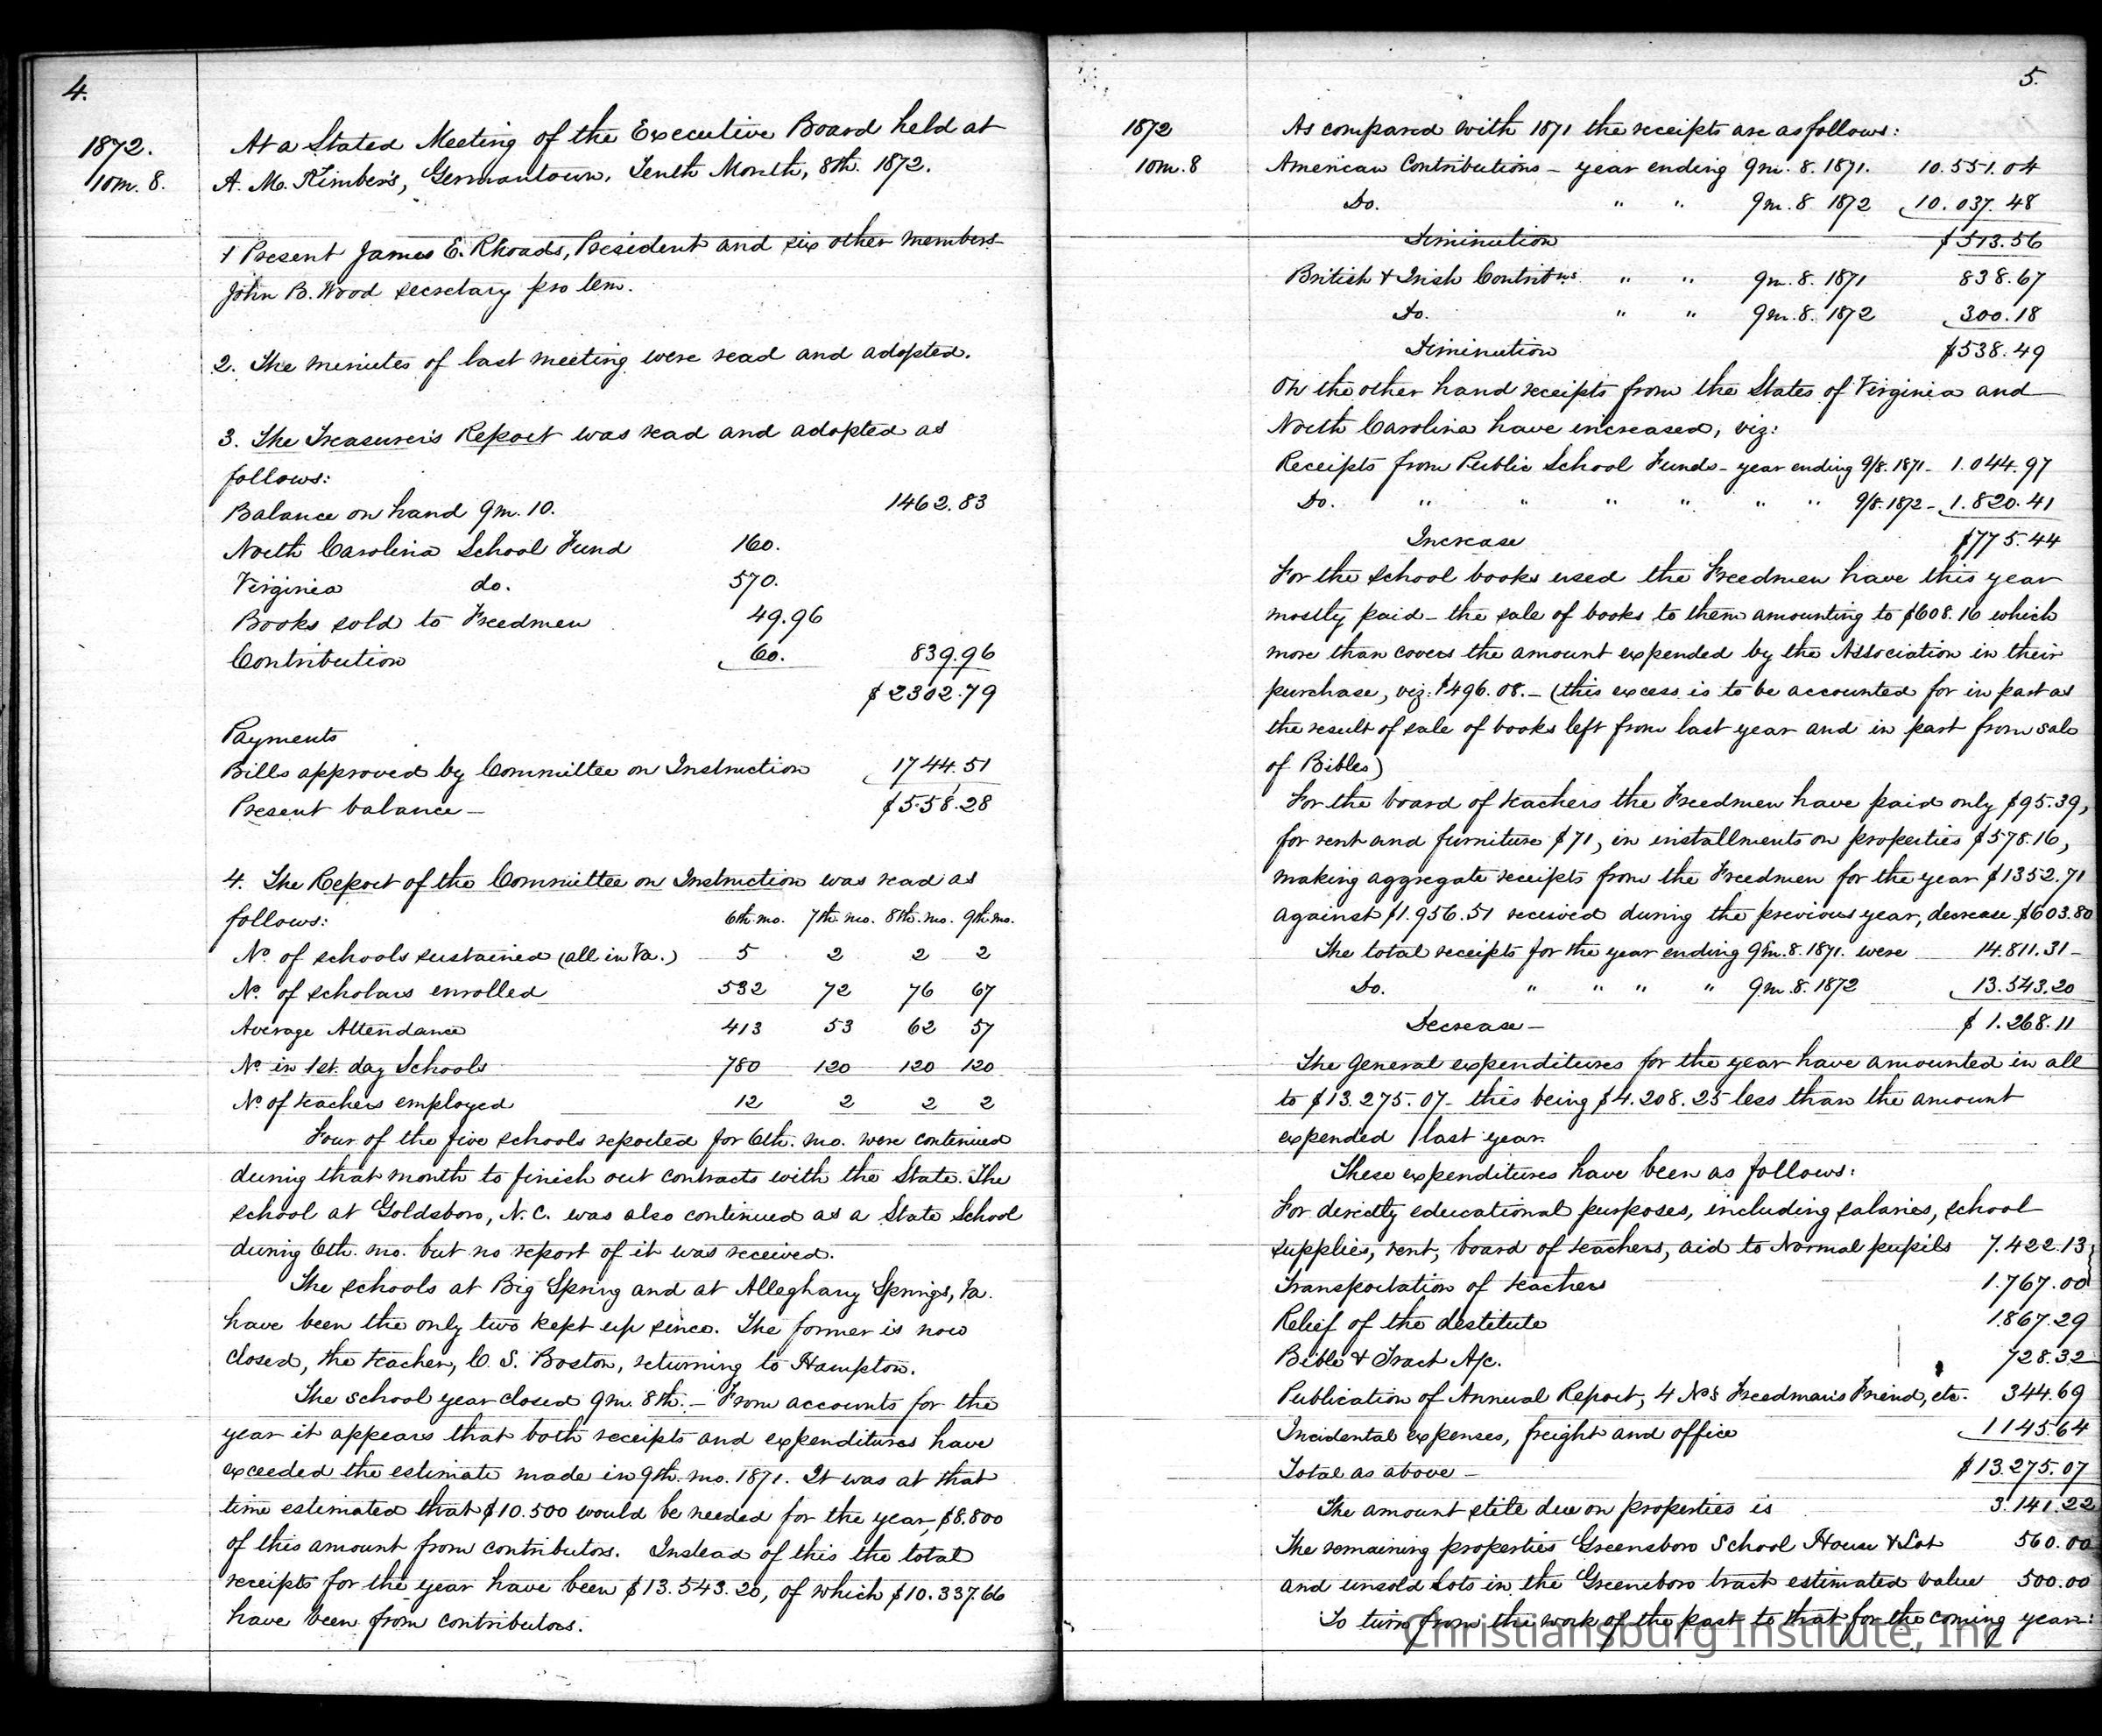 4.
1872.
10m. 8.
At a Stated Meeting of the Executive Board held at
A. M. Kimber's, Germantown, Tenth Month, 8th. 1872.
1 Present James E. Rhoads, President and six other members
John B. Wood secretary pro tem.
2. The minutes of last meeting were read and adopted.
3. The Treasurer's Report was read and adopted as
follows:
Balance on hand 9m. 10. 1462.83
North Carolina School Fund 160.
Virginia do. 570.
Books sold to Freedmen 49.96
Contribution 60. 839.96
$2302.79
Payments
Bills approved by Committee on Instruction 1744.51
Present balance — $558.28
4. The Report of the Committee on Instruction was read as
follows: 6th. mo. 7th. mo. 8th. mo. 9th. mo.
No. of schools sustained (all in Va.) 5 2 2 2
No. of scholars enrolled 532 72 76 67
Average Attendance 413 53 62 57
No. in 1st. day Schools 780 120 120 120
No. of teachers employed 12 2 2 2
Four of the five schools reported for 6th. mo. were continued
during that month to finish out contracts with the State. The
school at Goldsboro, N. C. was also continued as a State School
during 6th. mo. but no report of it was received.
The schools at Big Spring and at Alleghany Springs, Va.
have been the only two kept up since. The former is now
closed, the teacher, C. S. Boston, returning to Hampton.
The school year closed 9m. 8th. — From accounts for the
year it appears that both receipts and expenditures have
exceeded the estimate made in 9th. mo. 1871. It was at that
time estimated that $10.500 would be needed for the year, $8.800
of this amount from contributors. Instead of this the total
receipts for the year have been $13.543.20, of which $10.337.66
have been from contributors.
5.
1872
10m. 8
As compared with 1871 the receipts are as follows:
American Contributions — year ending 9m. 8. 1871. 10.551.04
Do. " " 9m. 8 1872 10.037.48
Diminution $513.56
British & Irish Contribtns. " " 9m. 8. 1871 838.67
Do. " " 9m. 8. 1872 300.18
Diminution $538.49
On the other hand receipts from the States of Virginia and
North Carolina have increased, viz:
Receipts from Public School Funds — year ending 9/8. 1871 — 1.044.97
Do. " " " " " " 9/8. 1872 — 1.820.41
Increase $775.44
For the school books used the Freedmen have this year
mostly paid — the sale of books to them amounting to $608.16 which
more than covers the amount expended by the Association in their
purchase, viz: $496.08. — (this excess is to be accounted for in part as
the result of sale of books left from last year and in part from sale
of Bibles)
For the board of teachers the Freedmen have paid only $95.39,
for rent and furniture $71, in installments on properties $578.16,
making aggregate receipts from the Freedmen for the year $1352.71
against $1.956.51 received during the previous year, decrease $603.80
The total receipts for the year ending 9m. 8. 1871. were 14.811.31 —
Do. " " " " 9m. 8. 1872 13.543.20
Decrease — $1.268.11
The general expenditures for the year have amounted in all
to $13.275.07 — this being $4.208.25 less than the amount
expended last year.
These expenditures have been as follows:
For directly educational purposes, including salaries, school
supplies, rent, board of teachers, aid to Normal pupils 7.422.13
Transportation of teachers 1.767.00
Relief of the destitute 1.867.29
Bible & Tract A/c. 728.32
Publication of Annual Report, 4 Nos. Freedman's Friend, etc. 344.69
Incidental expenses, freight and office 1145.64
Total as above — $13.275.07
The amount still due on properties is 3.141.22
The remaining properties Greensboro School House & Lot 560.00
and unsold Lots in the Greensboro tract estimated value 500.00
To turn from the work of the past to that for the coming year:
Christiansburg Institute, Inc